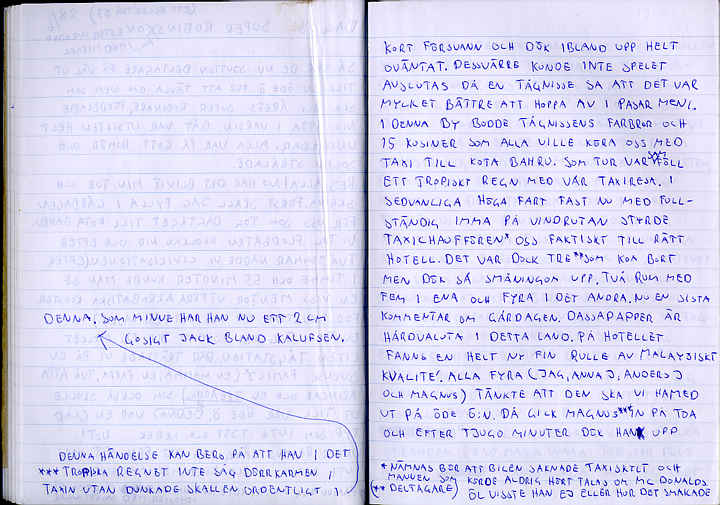 DENNA. SOM MINNE HAR HAN NU ETT 2 CM
GOSIGT JACK BLAND KALUFSEN.
DENNA HÄNDELSE KAN BERO PÅ ATT HAN I DET
*** TROPISKA REGNET INTE SÅG DÖRRKARMEN I
TAXIN UTAN DUNKADE SKALLEN ORDENTLIGT I
KORT FÖRSVANN OCH DÖK IBLAND UPP HELT
OVÄNTAT. DESSVÄRRE KUNDE INTE SPELET
AVSLUTAS DÅ EN TÅGNISSE SA ATT DET VAR
MYCKET BÄTTRE ATT HOPPA AV I PASAR MENG.
I DENNA BY BODDE TÅGNISSENS FARBROR OCH
15 KUSINER SOM ALLA VILLE KÖRA OSS MED
TAXI TILL KOTA BAHRU. SOM TUR VAR SAM FÖLL
ETT TROPISKT REGN MED VÅR TAXIRESA. I
SEDVANLIGA HÖGA FART FAST NU MED FULL-
STÄNDIG IMMA PÅ VINDRUTAN STYRDE
TAXICHAUFFÖREN* OSS FAKTISKT TILL RÄTT
HOTELL. DET VAR DOCK TRE** SOM KOM BORT
MEN DÖK SÅ SMÅNINGOM UPP. TVÅ RUM MED
FEM I ENA OCH FYRA I DET ANDRA. NU EN SISTA
KOMMENTAR OM GÅRDAGEN. DASSPAPPER ÄR
HÅRDVALUTA I DETTA LAND. PÅ HOTELLET
FANNS EN HELT NY FIN RULLE AV MALAYSISKT
KVALITE'. ALLA FYRA (JAG, ANNA J, ANDERS J
OCH MAGNUS) TÄNKTE ATT DEN SKA VI HA MED
UT PÅ ÖDE Ö:N. DÅ GICK MAGNUS*** IN PÅ TOA
OCH EFTER TJUGO MINUTER DÖK HAN UPP
* NÄMNAS BÖR ATT BILEN SAKNADE TAXISKYLT OCH
MANNEN SOM KÖRDE ALDRIG HÖRT TALAS OM MC DONALDS
(** DELTAGARE) ÖL VISSTE HAN EJ ELLER HUR DET SMAKADE